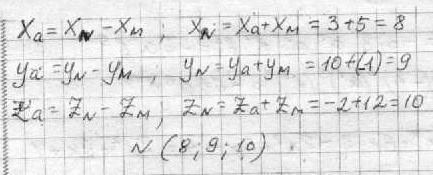 Xa = XN - XM ; XN = Xa + XM = 3+5 = 8
ya = yN - yM ; yN = ya + yM = 10+(-1) = 9
Za = ZN - ZM ; ZN = Za + ZM = -2+12 = 10
N (8; 9; 10) .